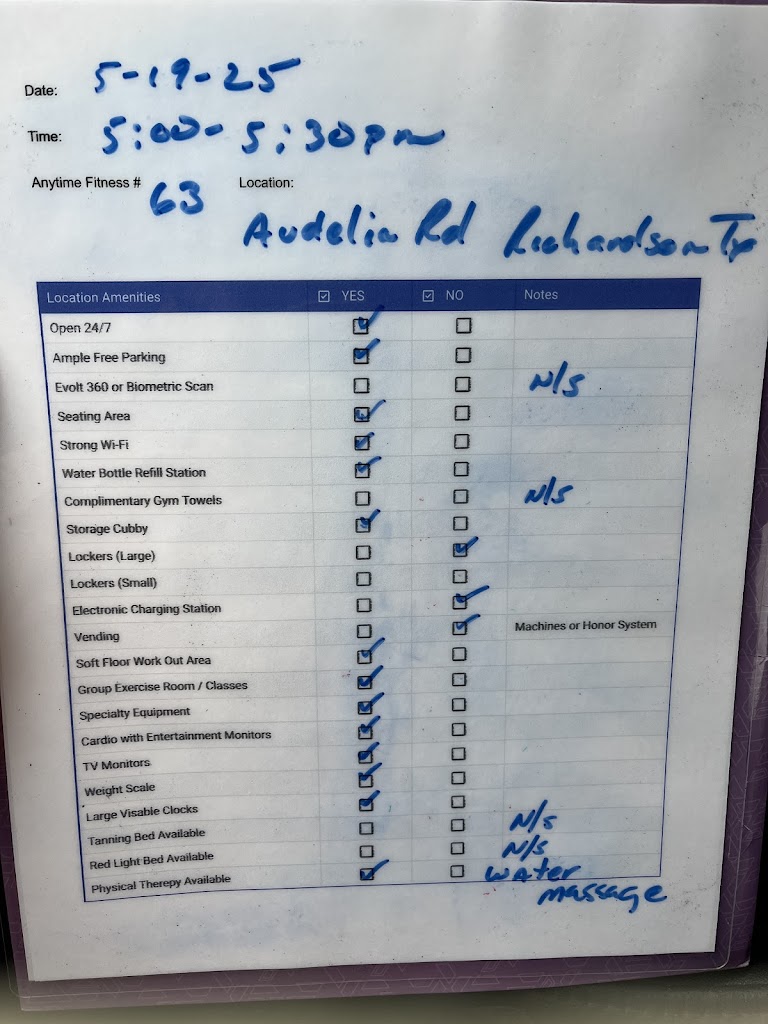 Date: 5-19-25
Time: 5:00-5:30pm
Anytime Fitness # 63 Location: Audelia Rd Richardson Tx
Location Amenities ☑ YES ☑ NO Notes
Open 24/7 ☑ ☐
Ample Free Parking ☑ ☐
Evolt 360 or Biometric Scan ☐ ☐ N/S
Seating Area ☑ ☐
Strong Wi-Fi ☑ ☐
Water Bottle Refill Station ☑ ☐
Complimentary Gym Towels ☐ ☐ N/S
Storage Cubby ☑ ☐
Lockers (Large) ☐ ☑
Lockers (Small) ☐ ☐
Electronic Charging Station ☐ ☑
Vending ☐ ☑ Machines or Honor System
Soft Floor Work Out Area ☑ ☐
Group Exercise Room / Classes ☑ ☐
Specialty Equipment ☑ ☐
Cardio with Entertainment Monitors ☑ ☐
TV Monitors ☑ ☐
Weight Scale ☑ ☐
Large Visable Clocks ☑ ☐
Tanning Bed Available ☐ ☐ N/S
Red Light Bed Available ☐ ☐ N/S
Physical Therepy Available ☑ ☐ water
massage